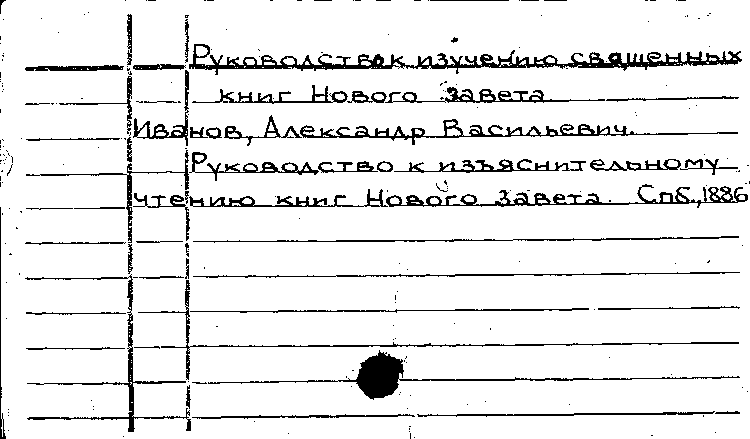 Руководство к изучению священных
книг Нового Завета
Иванов, Александр Васильевич.
Руководство к изъяснительному
чтению книг Нового Завета. Спб., 1886